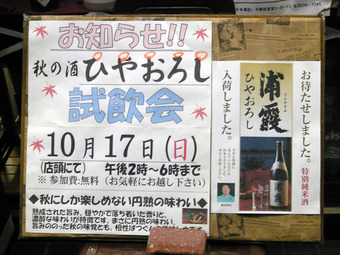 お知らせ!!
秋の酒 ひやおろし
試飲会
10月17日(日)
(店頭にて) 午後2時~6時まで
※ 参加費:無料 (お気軽にお越し下さい)
◆秋にしか楽しめない円熟の味わい◆
熟成された旨み、穏やかで落ち着いた香りと、
濃醇な味わいが特徴です。まさに円熟の味わい。
旨みののった秋の味覚とも、相性ばつぐん
お待たせしました。
特別純米酒
浦霞
ひやおろし
入荷しました。